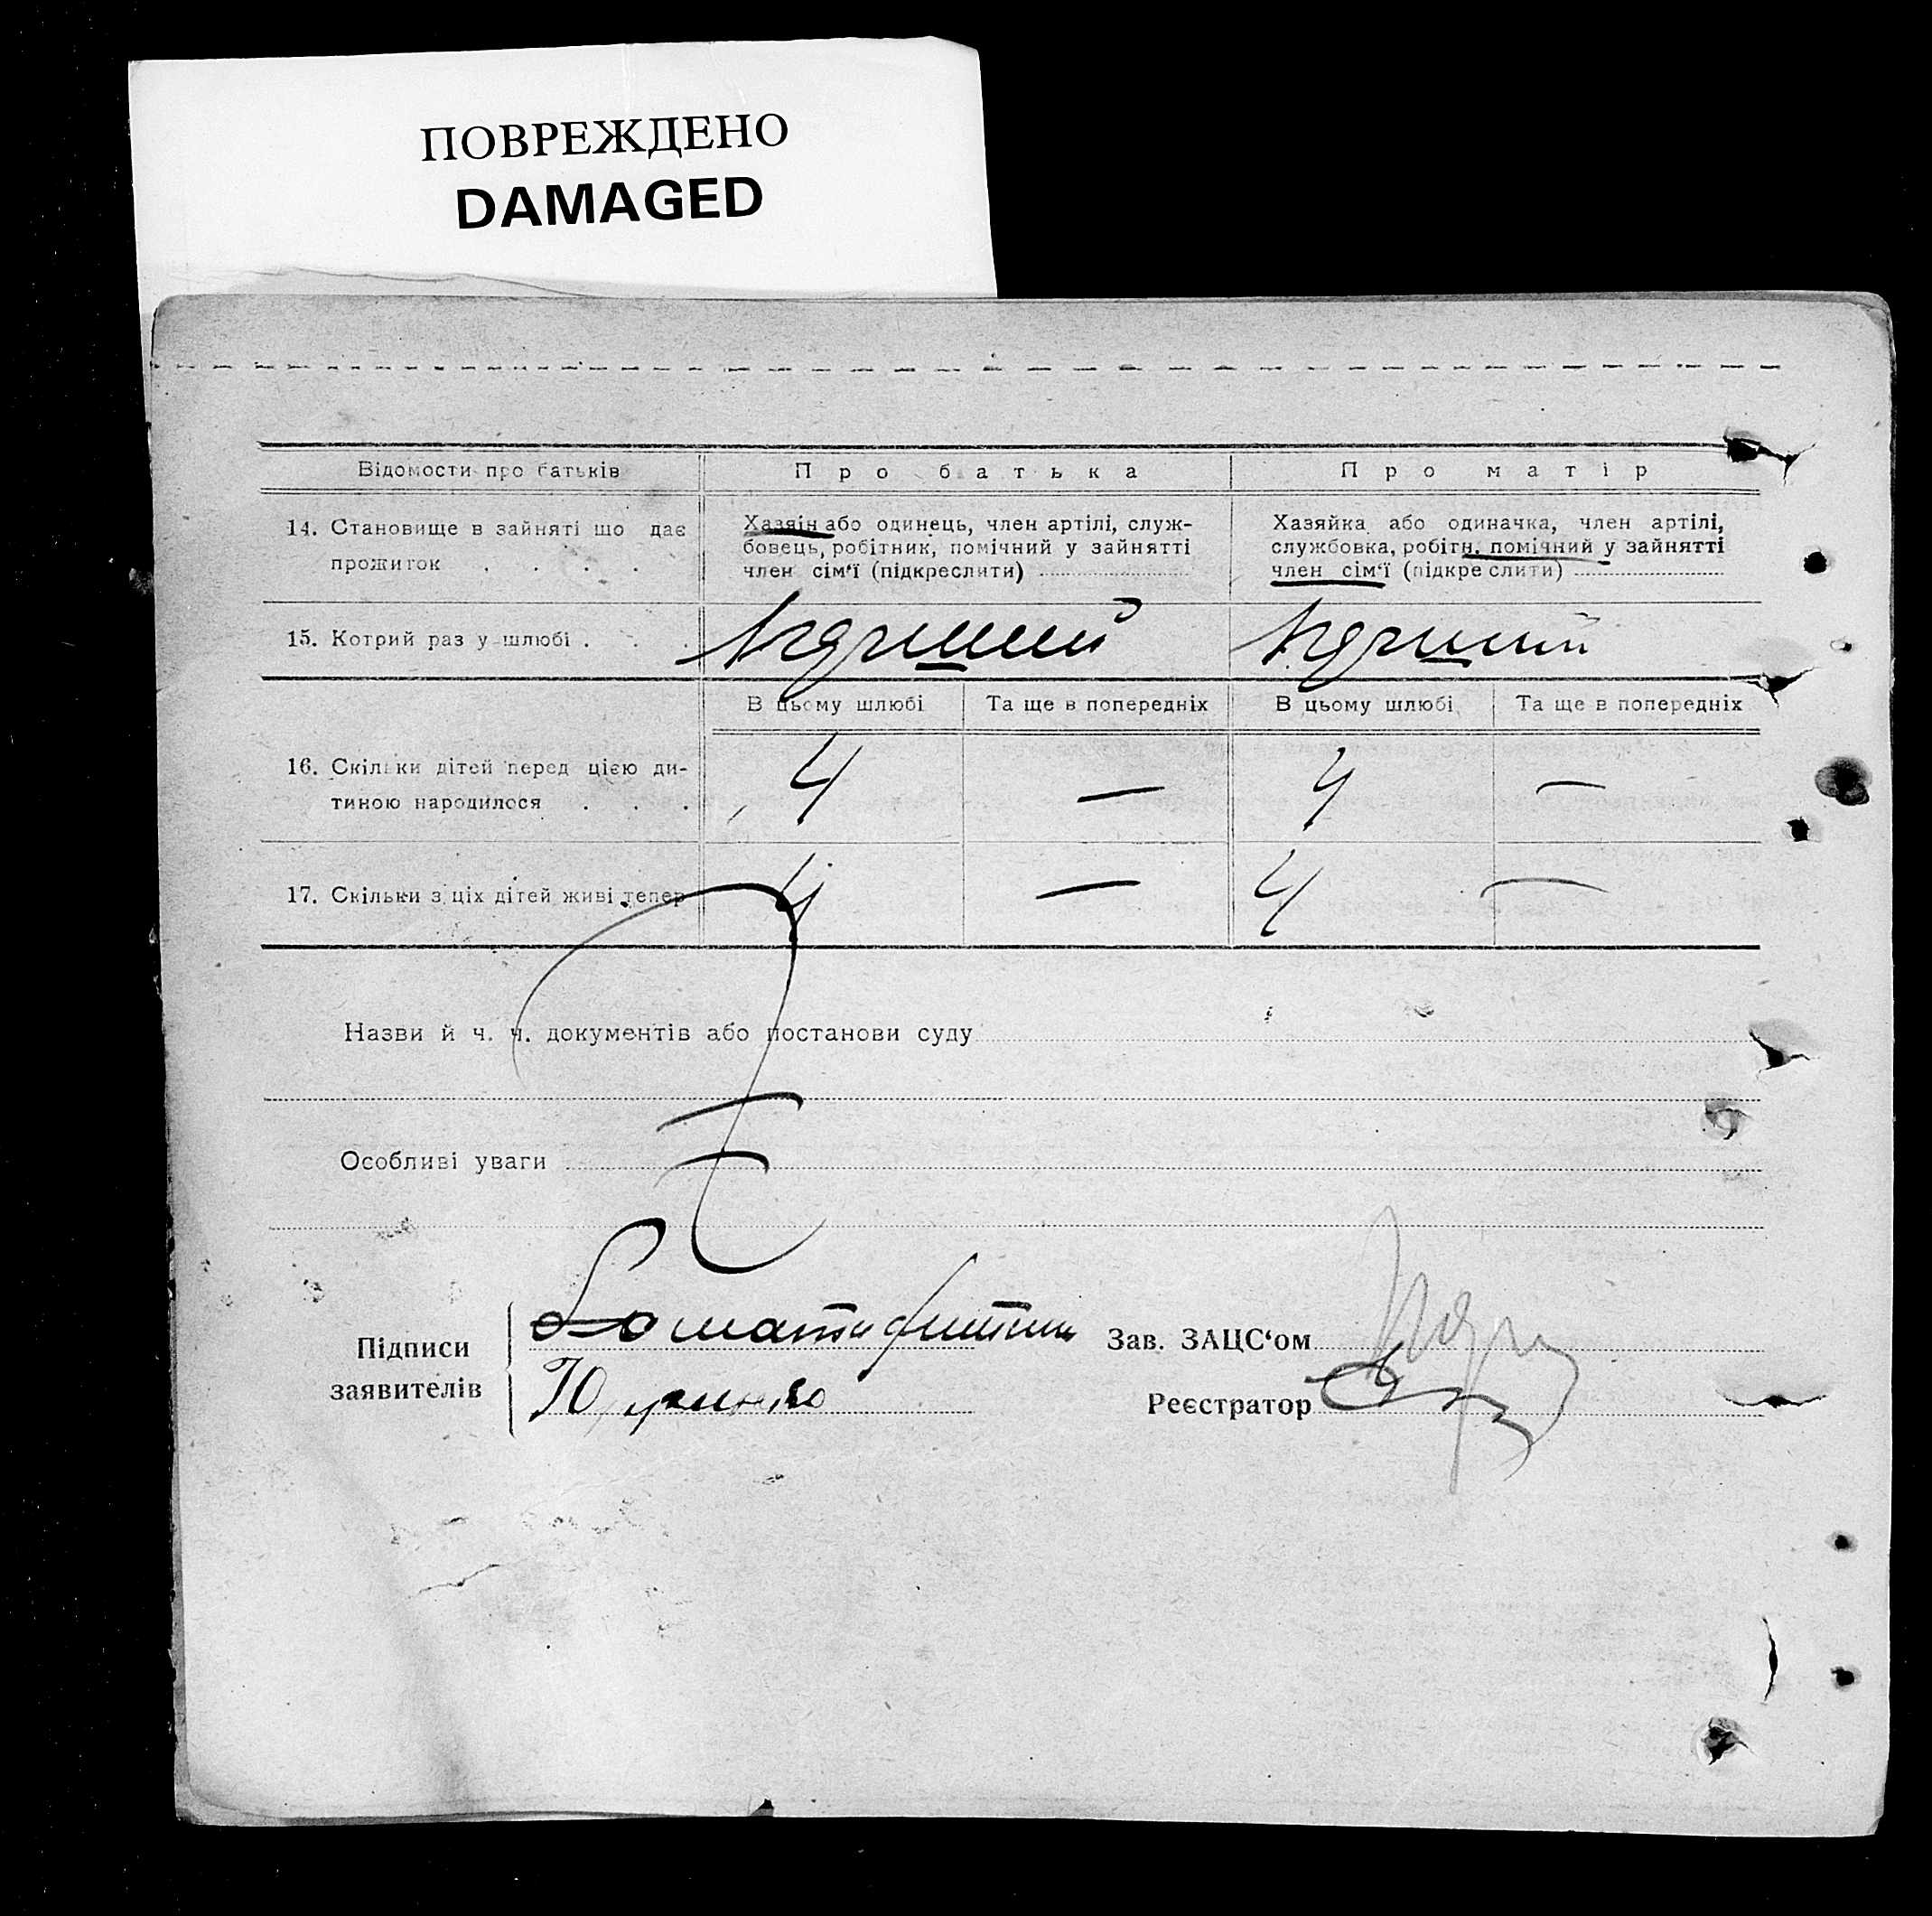 ПОВРЕЖДЕНО
DAMAGED
Відомости про батьків
Про батька
Про матір
14. Становище в зайняті що дає
прожиток . . . .
Хазяін або одинець, член артілі, служ-
бовець, робітник, помічний у зайнятті
член сім'ї (підкреслити)
Хазяйка або одиначка, член артілі,
службовка, робітн. помічний у зайнятті
член сім'ї (підкреслити)
15. Котрий раз у шлюбі . . .
В цьому шлюбі
Та ще в попередніх
В цьому шлюбі
Та ще в попередніх
16. Скільки дітей перед цією ди-
тиною народилося . . .
4 — 4 —
17. Скільки з ціх дітей живі тепер
4 — 4 —
Назви й ч. ч. документів або постанови суду
Особливі уваги
Підписи
заявителів
Зав. ЗАЦС'ом
Реєстратор